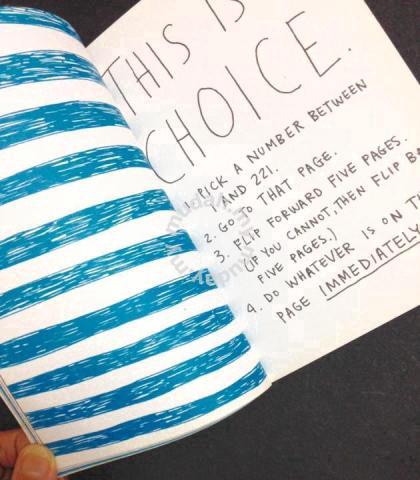 THIS IS
CHOICE.
1. PICK A NUMBER BETWEEN
1 AND 221.
2. GO TO THAT PAGE.
3. FLIP FORWARD FIVE PAGES.
(IF YOU CANNOT, THEN FLIP
FIVE PAGES.)
4. DO WHATEVER IS ON
PAGE IMMEDIATELY
mudah.my
mudah.my